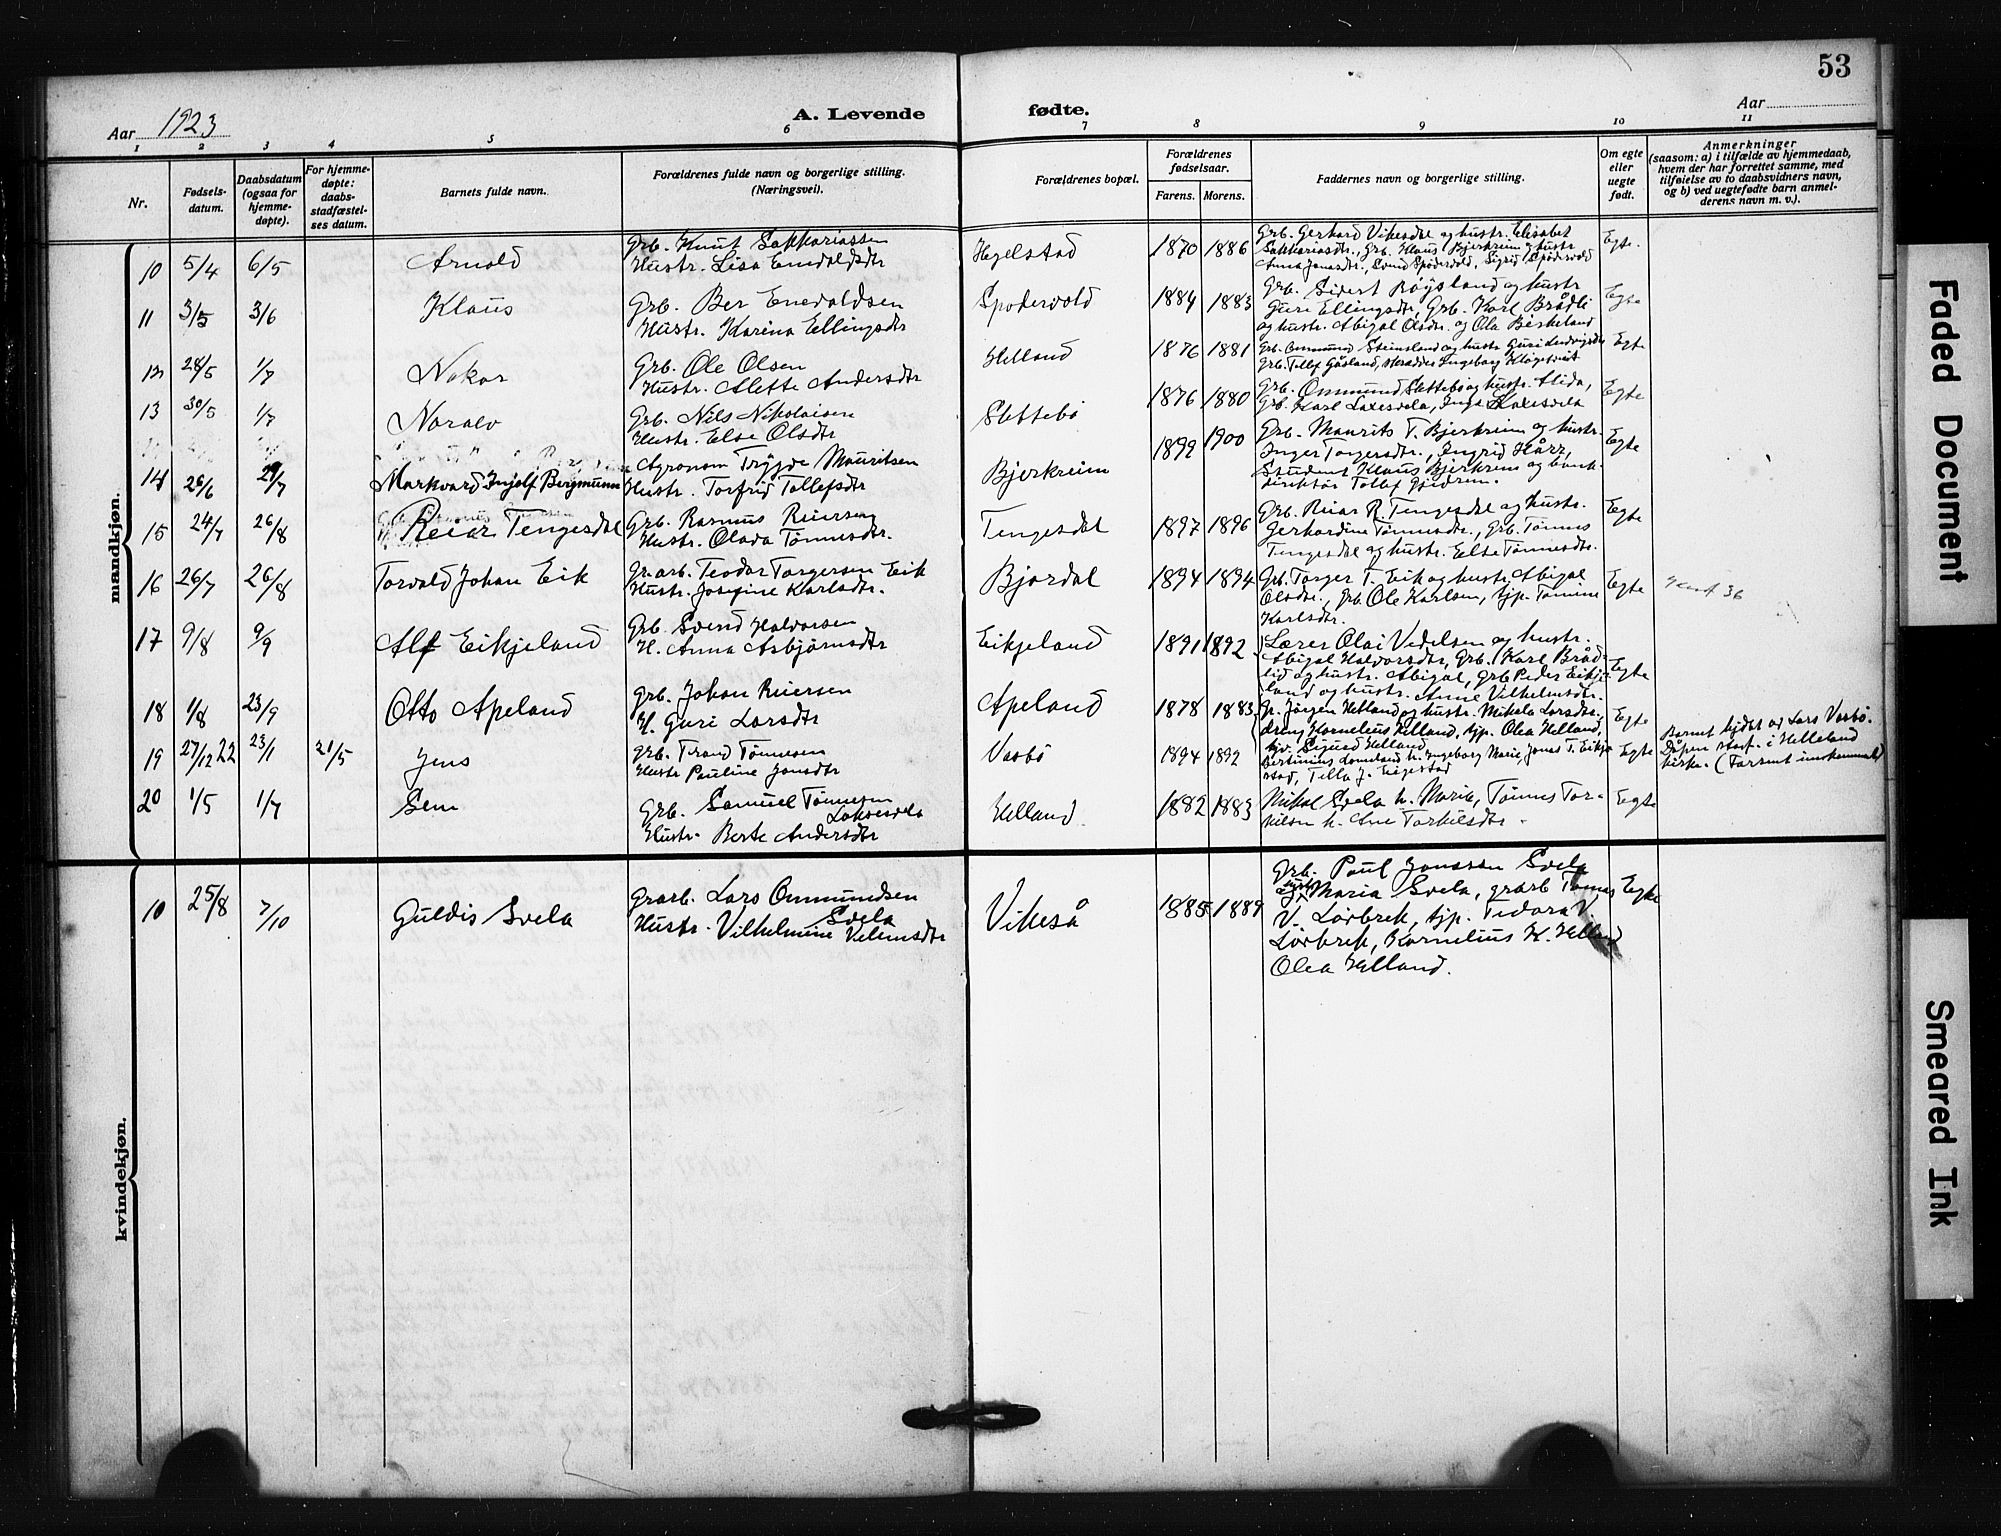 53
Aar 1923
A. Levende
fødte.
Aar
1 2 3 4 5 6 7 8 9 10 11
Nr.
Fødsels-
datum.
Daabsdatum
(ogsaa for
hjemme-
døpte).
For hjemme-
døpte:
daabs-
stadfæstel-
ses datum.
Barnets fulde navn.
Forældrenes fulde navn og borgerlige stilling.
(Næringsvei).
Forældrenes bopæl.
Forældrenes
fødselsaar.
Farens. Morens.
Faddernes navn og borgerlige stilling.
Om egte
eller
uegte
født.
Anmerkninger
(saasom: a) i tilfælde av hjemmedaab,
hvem der har forrettet samme, med
tilføielse av to daabsvidners navn,
og b) ved uegtefødte barn anmel-
derens navn m. v.).
mandkjøn.
10 5/4 6/5 Arnold
Grb. Knut Sakkariassen
Hustr. Lisa Enevaldsdtr
Hegelstad 1870 1886
Grb. Gerhard Vikesdal og hustr. Elisabet
Sakkariasdtr., Grb. Klaus Bjerkreim og hustr
Anna Jonasdtr., Svend Spødervold, Sigrid Spødervold
Egte.
11 3/5 3/6 Klaus
Grb. Ber Enevaldsen
Hustr. Karina Ellingsdtr
Spodervold 1884 1883
Grb. Sivert Røysland og hustr
Guri Ellingsdtr, Grb. Karl Brådli
og hustr. Abigal Olsdtr. og Ola Birkeland
Egte
12 28/5 1/7 Nokor
Grb. Ole Olsen
Hustr. Alette Andersdtr
Helland 1876 1881
Grb. Ommund Steinsland og hustr Guri Ludvigsdtr
Grb. Tellef Gåsland, Ingeborg Kløgetveit
Egte
13 30/5 1/7 Noralv
Grb. Nils Nikolaisen
Hustr. Else Olsdtr
Slettebø 1876 1880
Grb. Ommund Slettebø og hustr. Alida,
Grb. Karl Laxesvela, Inga Laxesvela
Egte
14 26/6 29/7 Markvard Ingolf Bergmunn
Agronom Trygve Mauritsen
Hustr. Torfrid Tollefsdtr
Bjerkreim 1892 1900
Grb. Maurits T. Bjerkreim og hustr.
Inger Torgersdtr., Ingrid Hårr,
Student Klaus Bjerkreim og bank-
direktør Tollef Gjedrem.
Egte
15 24/7 26/8 Reiar Tengesdal
Grb. Rasmus Reiersen
Hustr. Olava Tønnesdtr.
Tengesdal 1897 1896
Grb. Reiar R. Tengesdal og hustr.
Gerhardine Tønnesdtr., Grb. Tønnes
Tengesdal og hustr. Else Tønnesdtr.
Egte
16 26/7 26/8 Torvald Johan Eik
Gr.arb. Teodor Torgersen Eik
Hustr. Josefine Karlsdtr.
Bjordal 1894 1894
Grb. Torger T. Eik og hustr. Abigal
Olsdtr., Grb. Ole Karlsen, tjp. Tomine
Karlsdtr.
Egte
17 9/8 9/9 Alf Eikjeland
Grb. Svend Halvorsen
H. Anna Asbjørnsdtr
Eikjeland 1891 1892
Lærer Olai Vedelsen og hustr.
Abigal Halvorsdtr, Grb. Karl Bråd-
lid og hustr. Abigal, Grb Peder Eikje-
land og hustr. Anne Vilhelmsdtr.
Egte
18 1/8 23/9 Otto Apeland
Grb. Johan Reiersen
H. Guri Larsdtr
Apeland 1878 1883
Gr. Jørgen Helland og hustr. Mikala Larsdtr.,
dreng Kornelius Helland, tjp. Olea Helland,
Sigurd Helland
Egte
19 27/12 22 23/1 21/5 Jens
Grb. Trond Tønnesen
Hustr Pauline Jonsdtr
Vasbø 1894 1892
h. Ingeborg Marie, Jonas T. Eike-
stad, Tilla J. Eigestad
Egte
Barnet hjdpt av Lars Vasbø.
Dåpen staf. i Helleland
kirke.
20 1/5 1/7 Sem
Grb. Samuel Tønnesen
Laksesvela
Hustr. Berte Andersdtr
Helland 1882 1883
Mikal Svela h. Marie, Tønnes Tor-
kilsen h. Ane Torkilsdtr.
Egte
kvindekjøn.
10 25/8 7/10 Guldis Svela
Grarb. Lars Ommundsen
Svela
Hustr. Vilhelmine Velemsdtr
Vikeså 1885 1889
Grb. Paul Jonassen Svela
Maria Svela, grarb Tønnes
V. Lörbrek, tjp. Tedora V
Lörbrek, Kornelius K. Helland
Olea Helland.
Egte
Faded Document
Smeared Ink